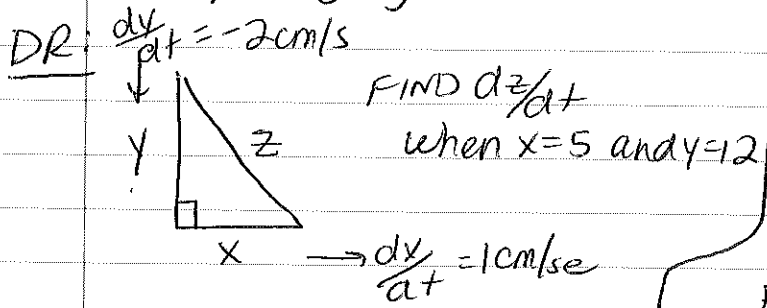 DR: dy/dt = -2cm/s
FIND dz/dt
when x=5 and y=12
y
z
x
→ dx/dt = 1cm/se